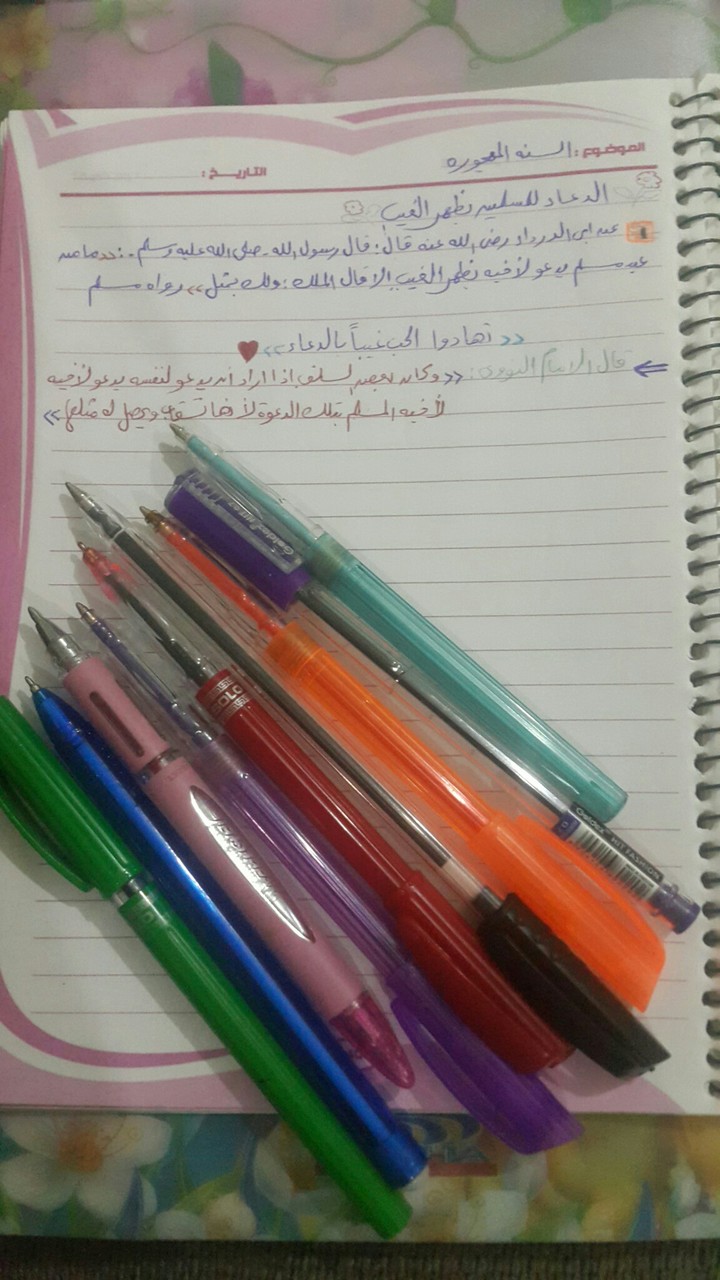 الموضوع : السنه المهجوره
التاريخ :
الدعاء للمسلمين بظهر الغيب
1 عن ابى الدرداء رضى الله عنه قال : قال رسول الله - صلى الله عليه وسلم - : << ما من
عبد مسلم يدعو لأخيه بظهر الغيب الا قال الملك : ولك بمثل >> رواه مسلم
<< تهادوا الحب غيباً بالدعاء >>
قال الامام النووى : << وكان بعض السلف إذا اراد أن يدعو لنفسه يدعو لأخيه
لأخيه المسلم بتلك الدعوة لأنها تستجاب ويحصل له مثلها >>
Geldex HIT FASHION
SOLO